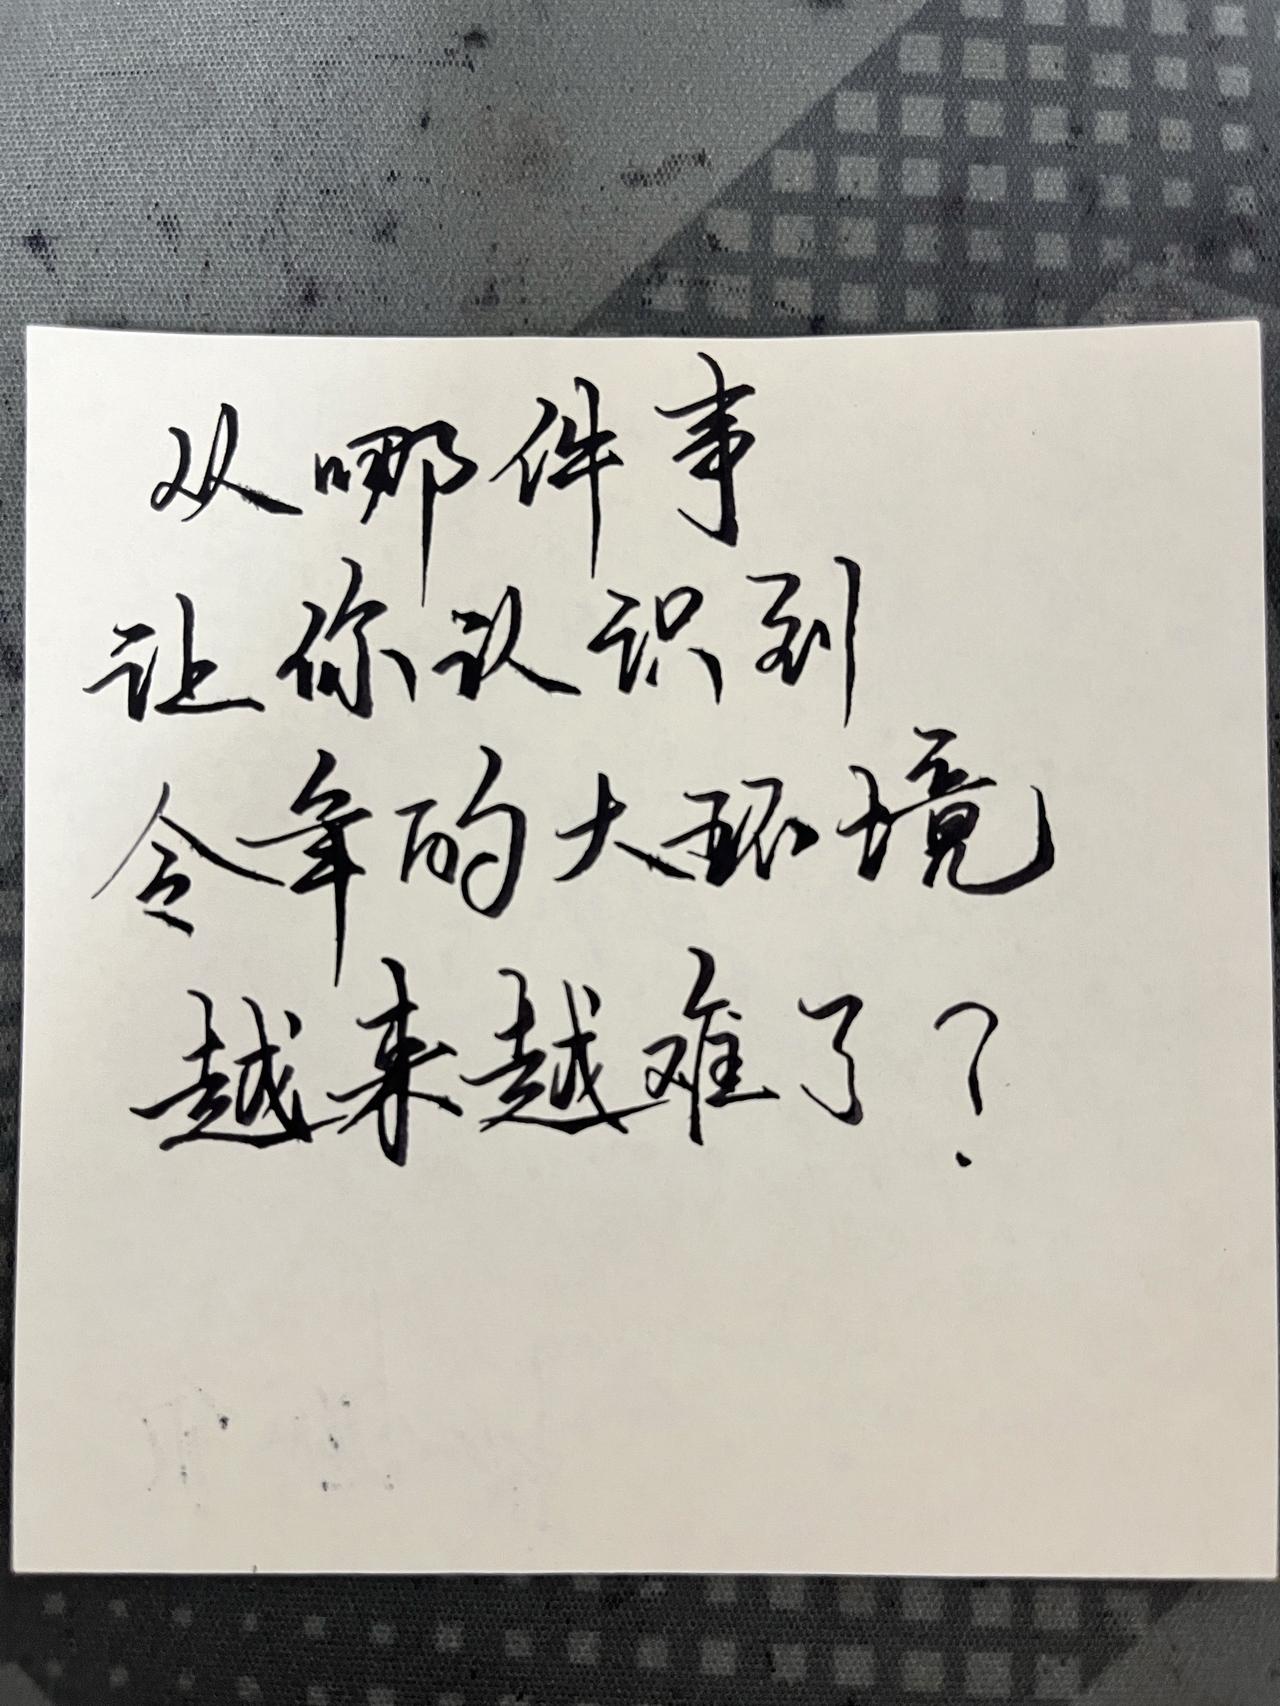 从哪件事
让你认识到
今年的大环境
越来越难了？